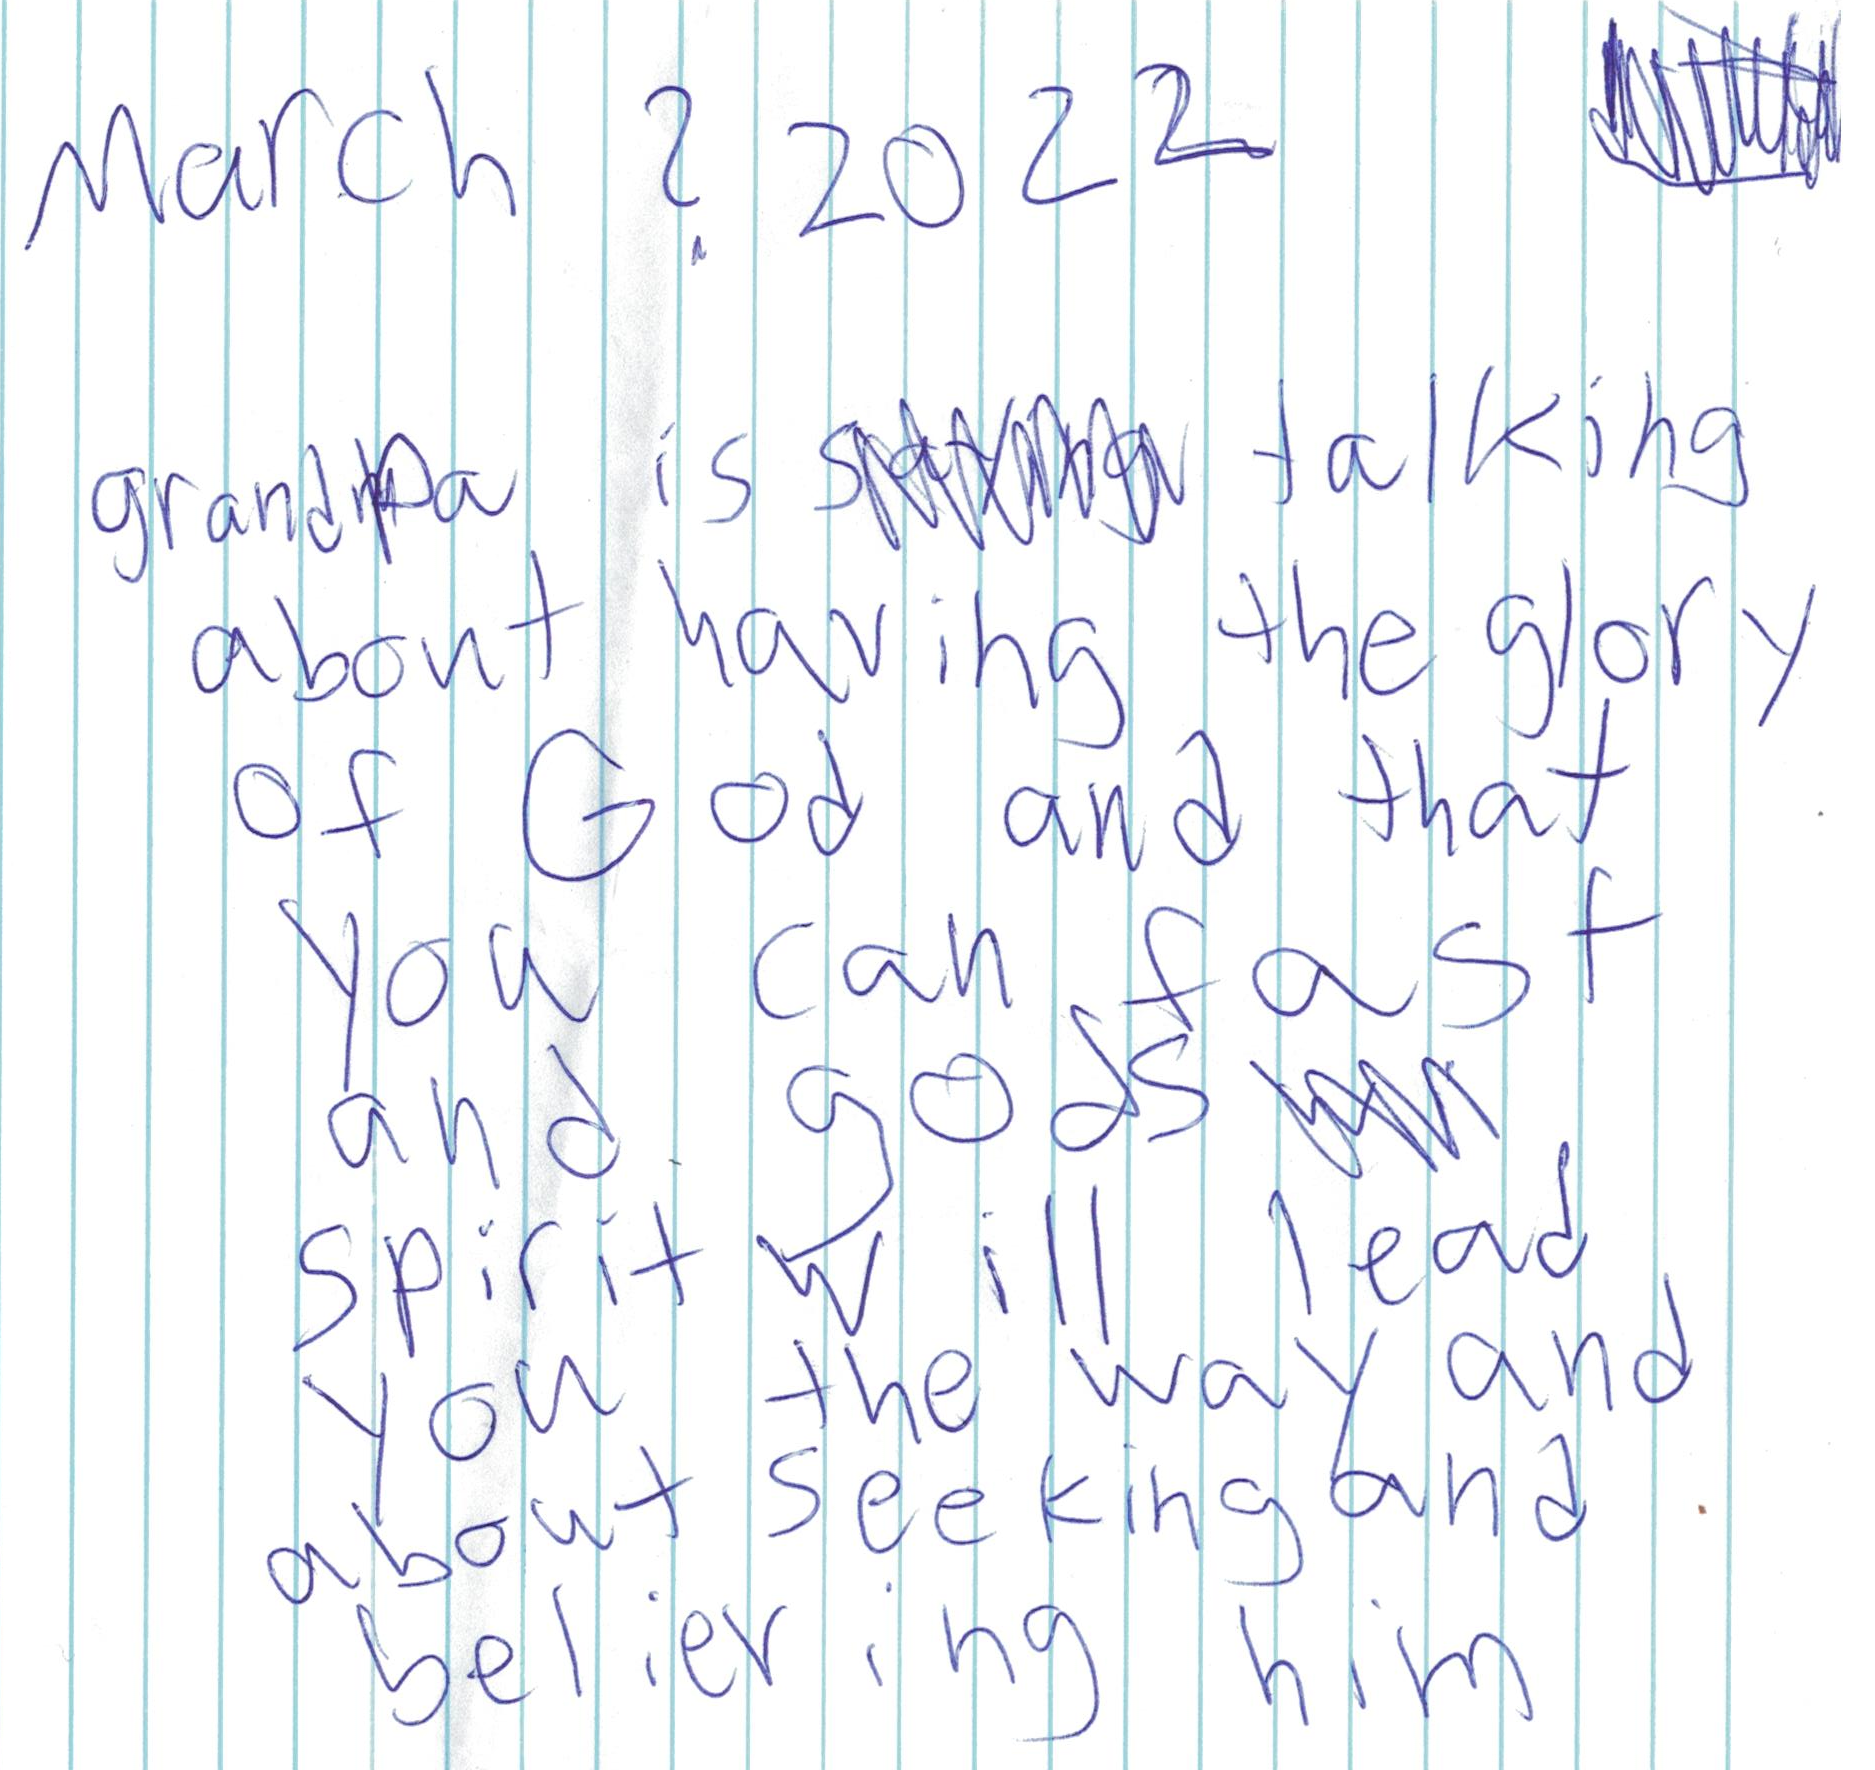 March ? 2022
grandpa is talking
about having the glory
of God and that
you can fast
and gods
spirit will lead
you the way and
about seeking and
believing him